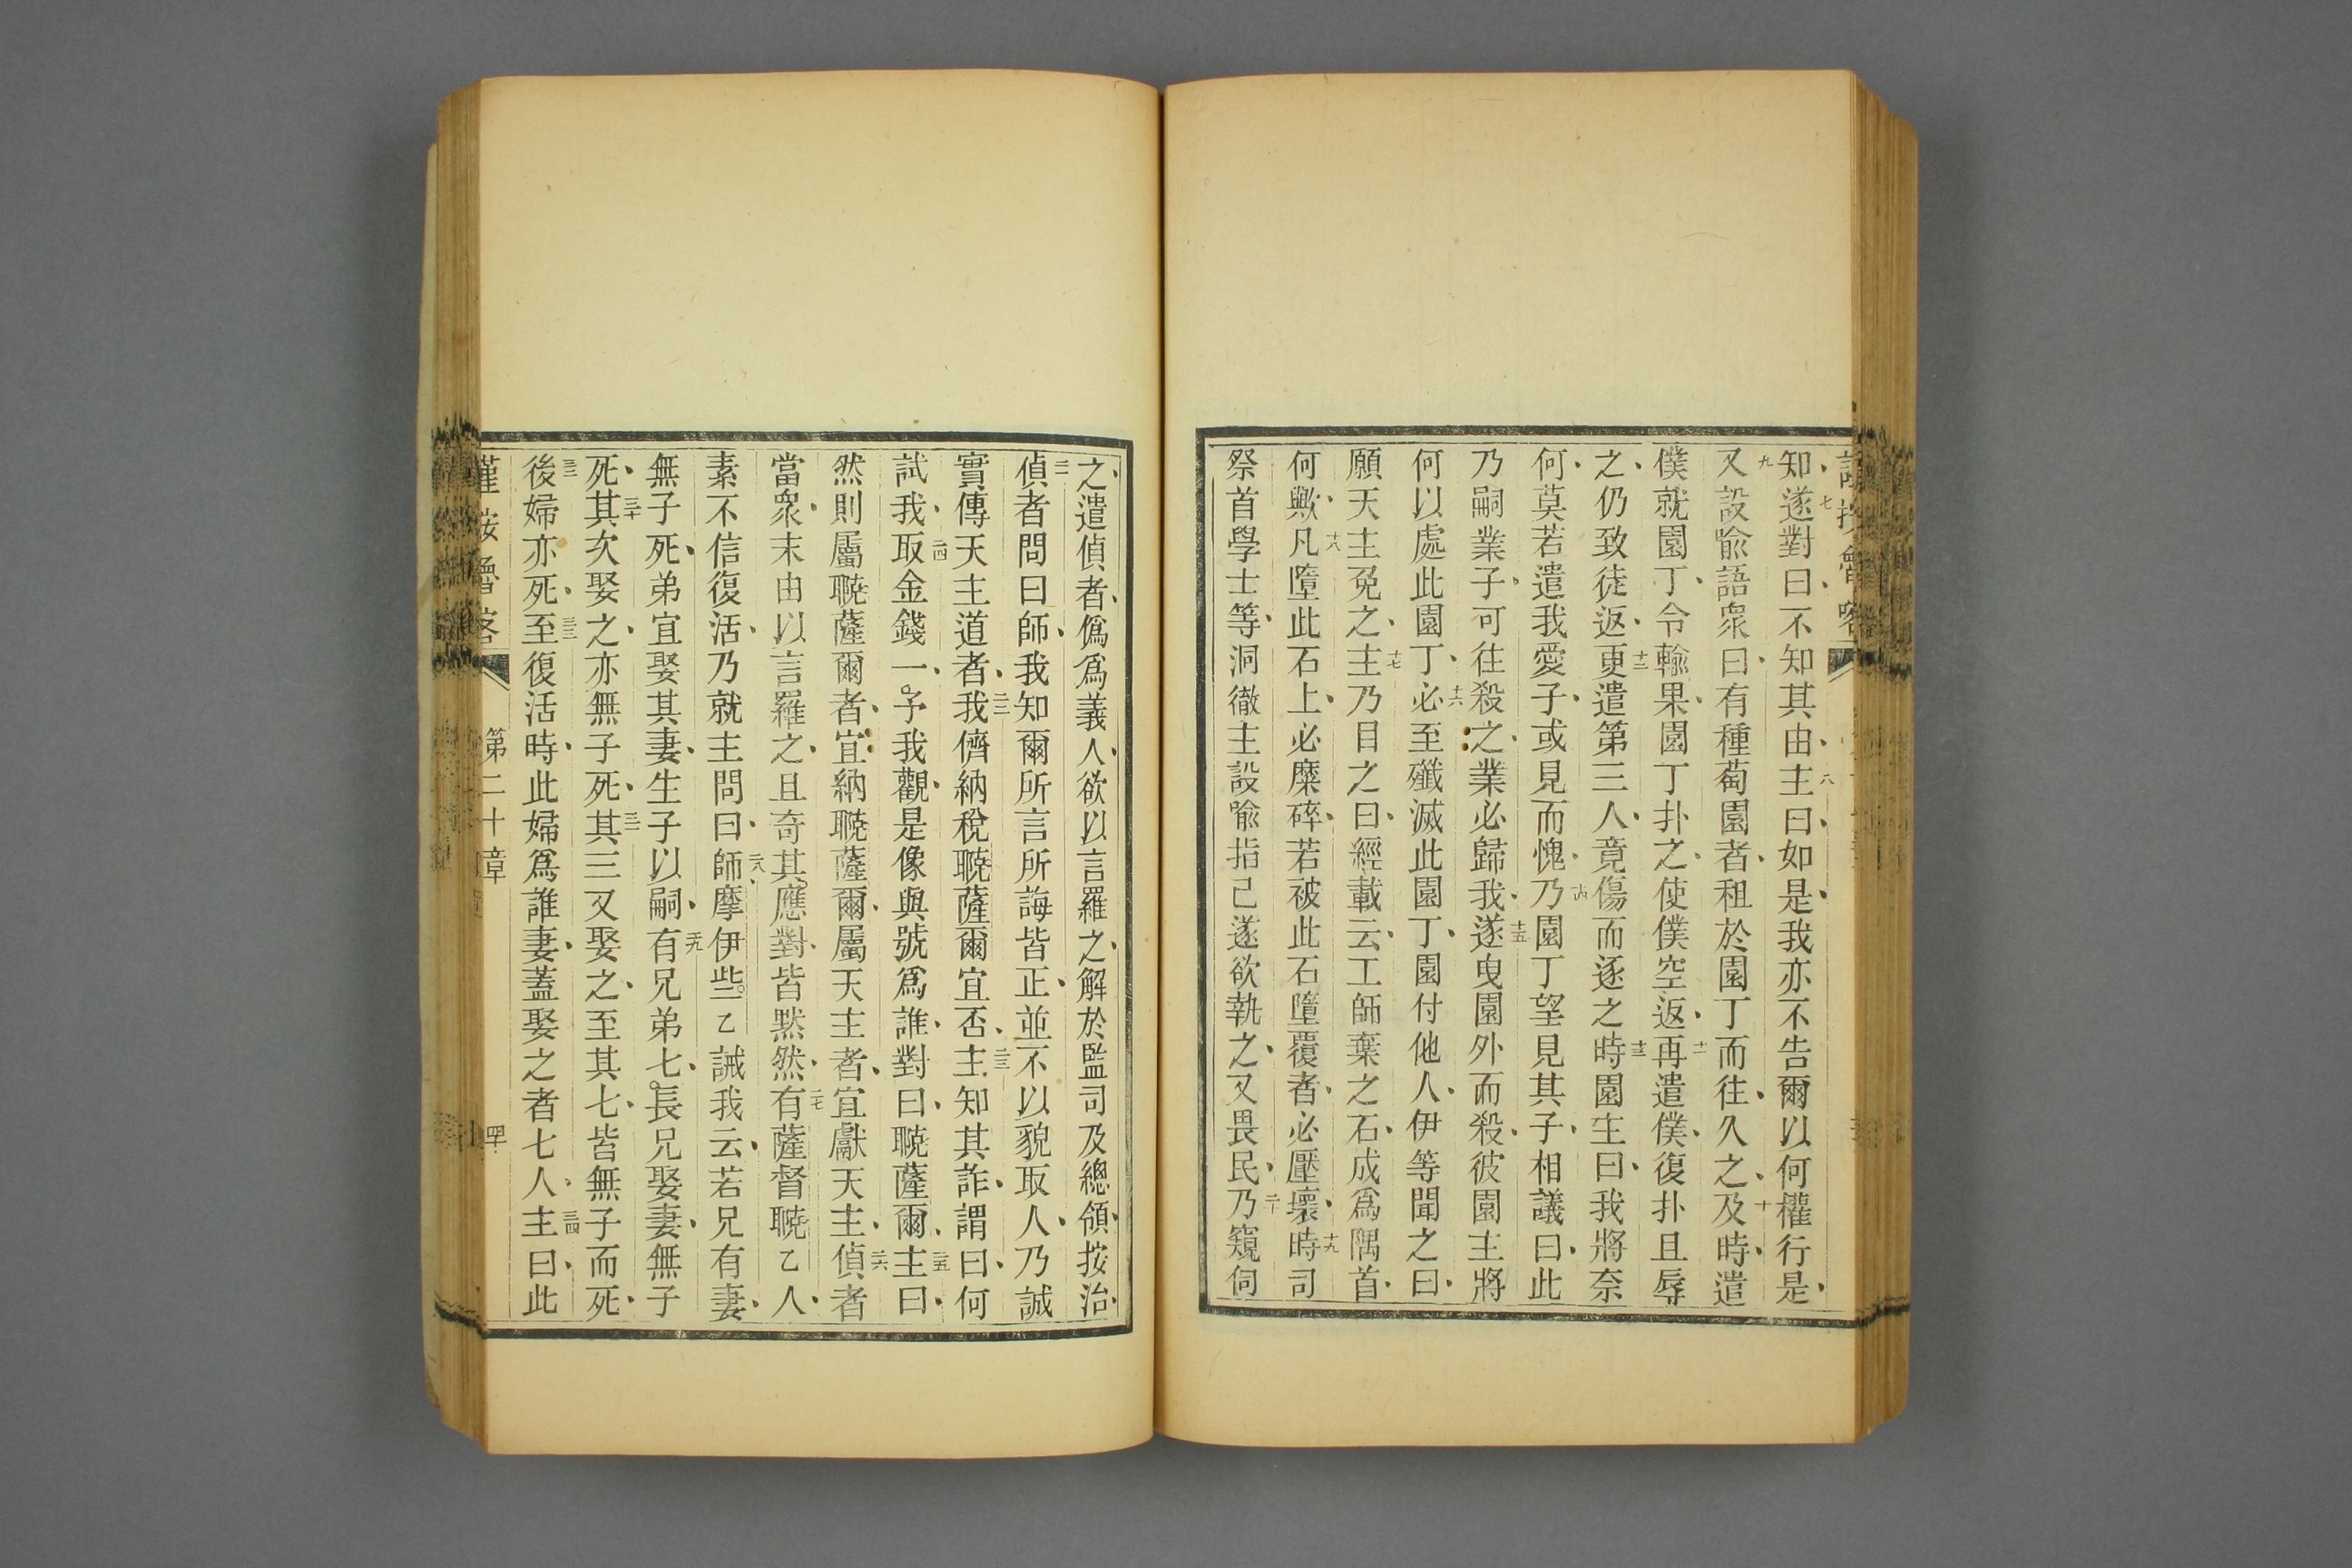 知、遂對曰、不知其由、主曰、如是、我亦不告爾以何權行是、
七
八
又設喩語衆曰、有種萄園者、租於園丁而往、久之、及時、遣
九
十
僕就園丁、令輸果、園丁扑之、使僕空返、再遣僕、復扑且辱
十一
之、仍致徒返、更遣第三人、竟傷而逐之、時園主曰、我將奈
十二
十三
何、莫若遣我愛子、或見而愧、乃園丁望見其子、相議曰、此
十四
乃嗣業子、可往殺之、業必歸我、遂曳園外而殺、彼園主將
十五
何以處此園丁、必至殲滅此園丁、園付他人、伊等聞之曰、
十六
願天主免之、主乃目之曰、經載云、工師棄之石、成爲隅首、
十七
何歟、凡墮此石上、必糜碎、若被此石墮覆者、必壓壞、時司
十八
十九
祭首學士等、洞徹主設喩指己、遂欲執之、又畏民、乃窺伺
二十
之、遣偵者、僞爲義人、欲以言羅之、解於監司及總領、按治、
偵者問曰、師、我知爾所言所誨皆正、並不以貌取人、乃誠
二一
實傳天主道者、我儕納稅聵薩爾宜否、主知其詐、謂曰、何
二二
二三
試我、取金錢一、予我觀、是像與號爲誰、對曰、聵薩爾、主曰、
二四
二五
然則屬聵薩爾者、宜納聵薩爾、屬天主者、宜獻天主、偵者
二六
當衆、末由以言羅之、且奇其應對、皆默然、有薩督聵乙人、
二七
素不信復活、乃就主問曰、師、摩伊些乙誡我云、若兄有妻、
二八
無子死、弟宜娶其妻、生子以嗣、有兄弟七、長兄娶妻、無子
二九
死、其次娶之、亦無子死、其三又娶之、至其七、皆無子而死、
三十
三一
後婦亦死、至復活時、此婦爲誰妻、蓋娶之者七人、主曰、此
三二
三三
三四
第二十章